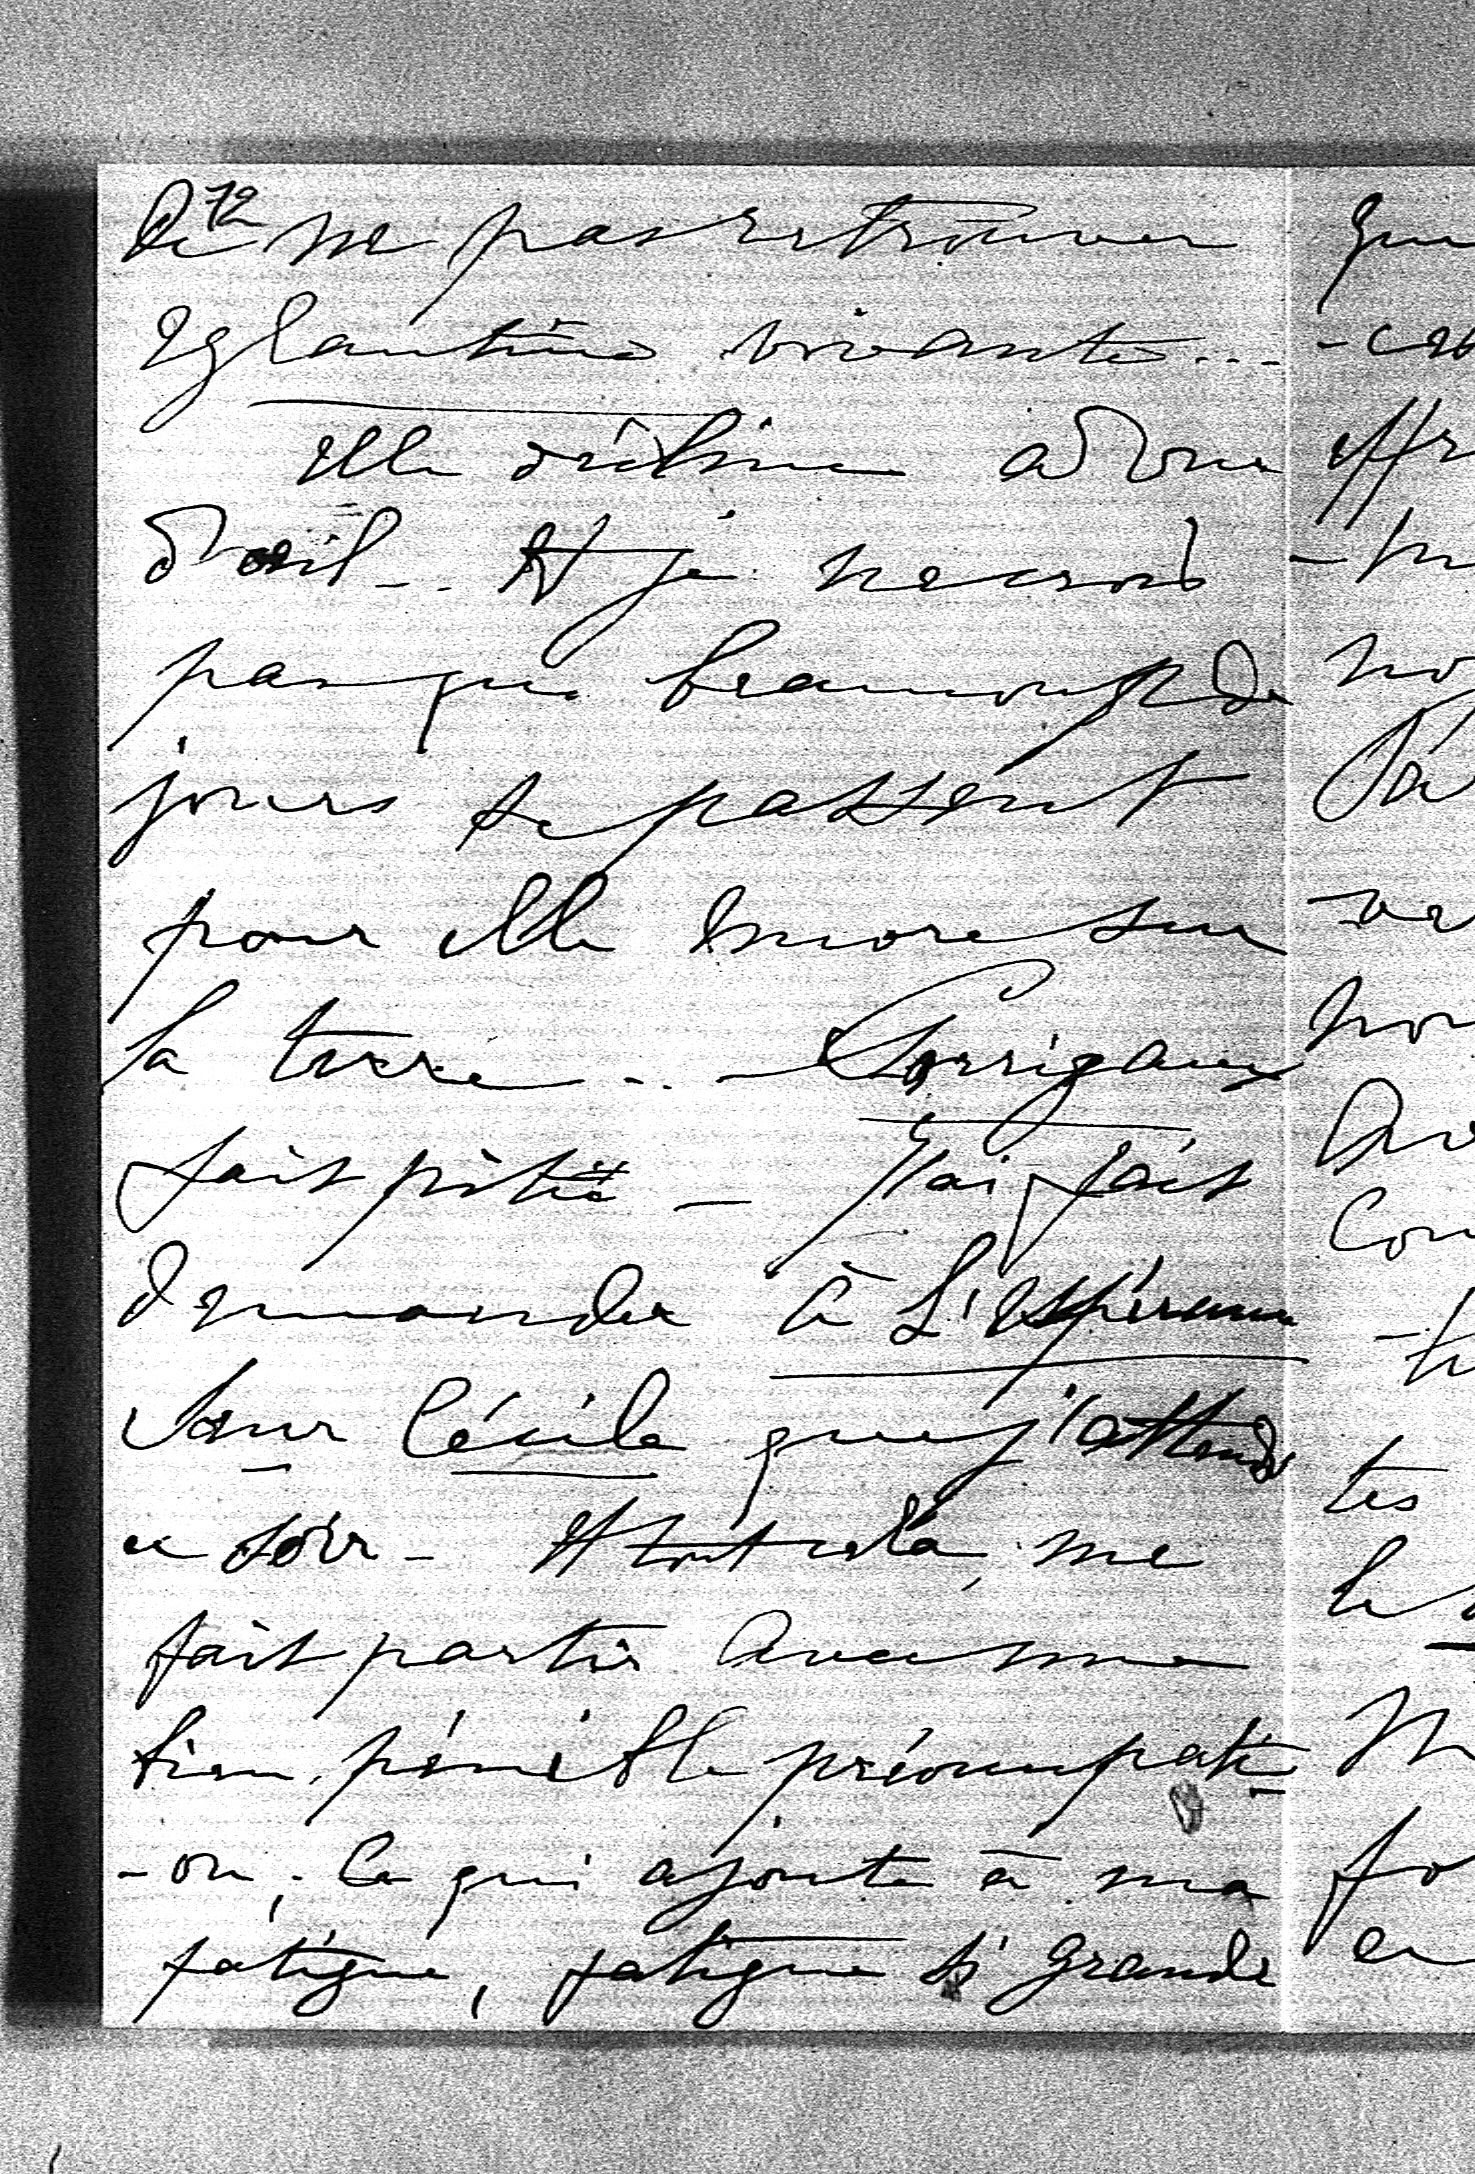 72
de ne pas retrouver
Eglantine vivante...
elle décline à vue
d'œil.. Et je ne crois
pas que beaucoup de
jours se passent
pour elle encore sur
la terre... Corrigaux
fait pitié - J'ai fait
demander à L'espérance
Sœur Cécile que j'attends
ce soir - Et tout cela, me
fait partir avec une
bien pénible préoccupati-
-on, ce qui ajoute à ma
fatigue, fatigue si grande